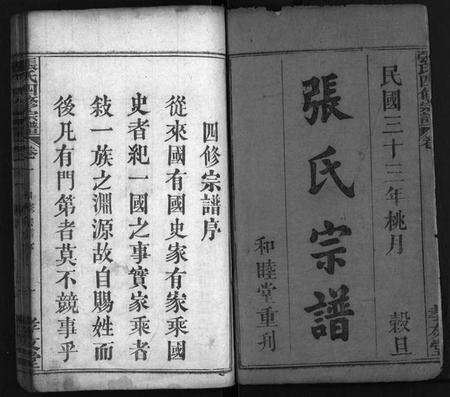 民國三十三年桃月 穀旦
張氏宗譜
和睦堂重刋
四修宗譜序
從來國有國史家有家乘國
史者紀一國之事實家乘者
敍一族之淵源故自賜姓而
後凡有門第者莫不競事乎
張氏四修宗譜 卷一